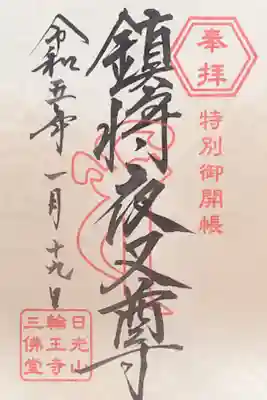 奉拝
特別御開帳
鎮将夜叉尊
令和五年一月十九日
日光山
輪王寺
三佛堂